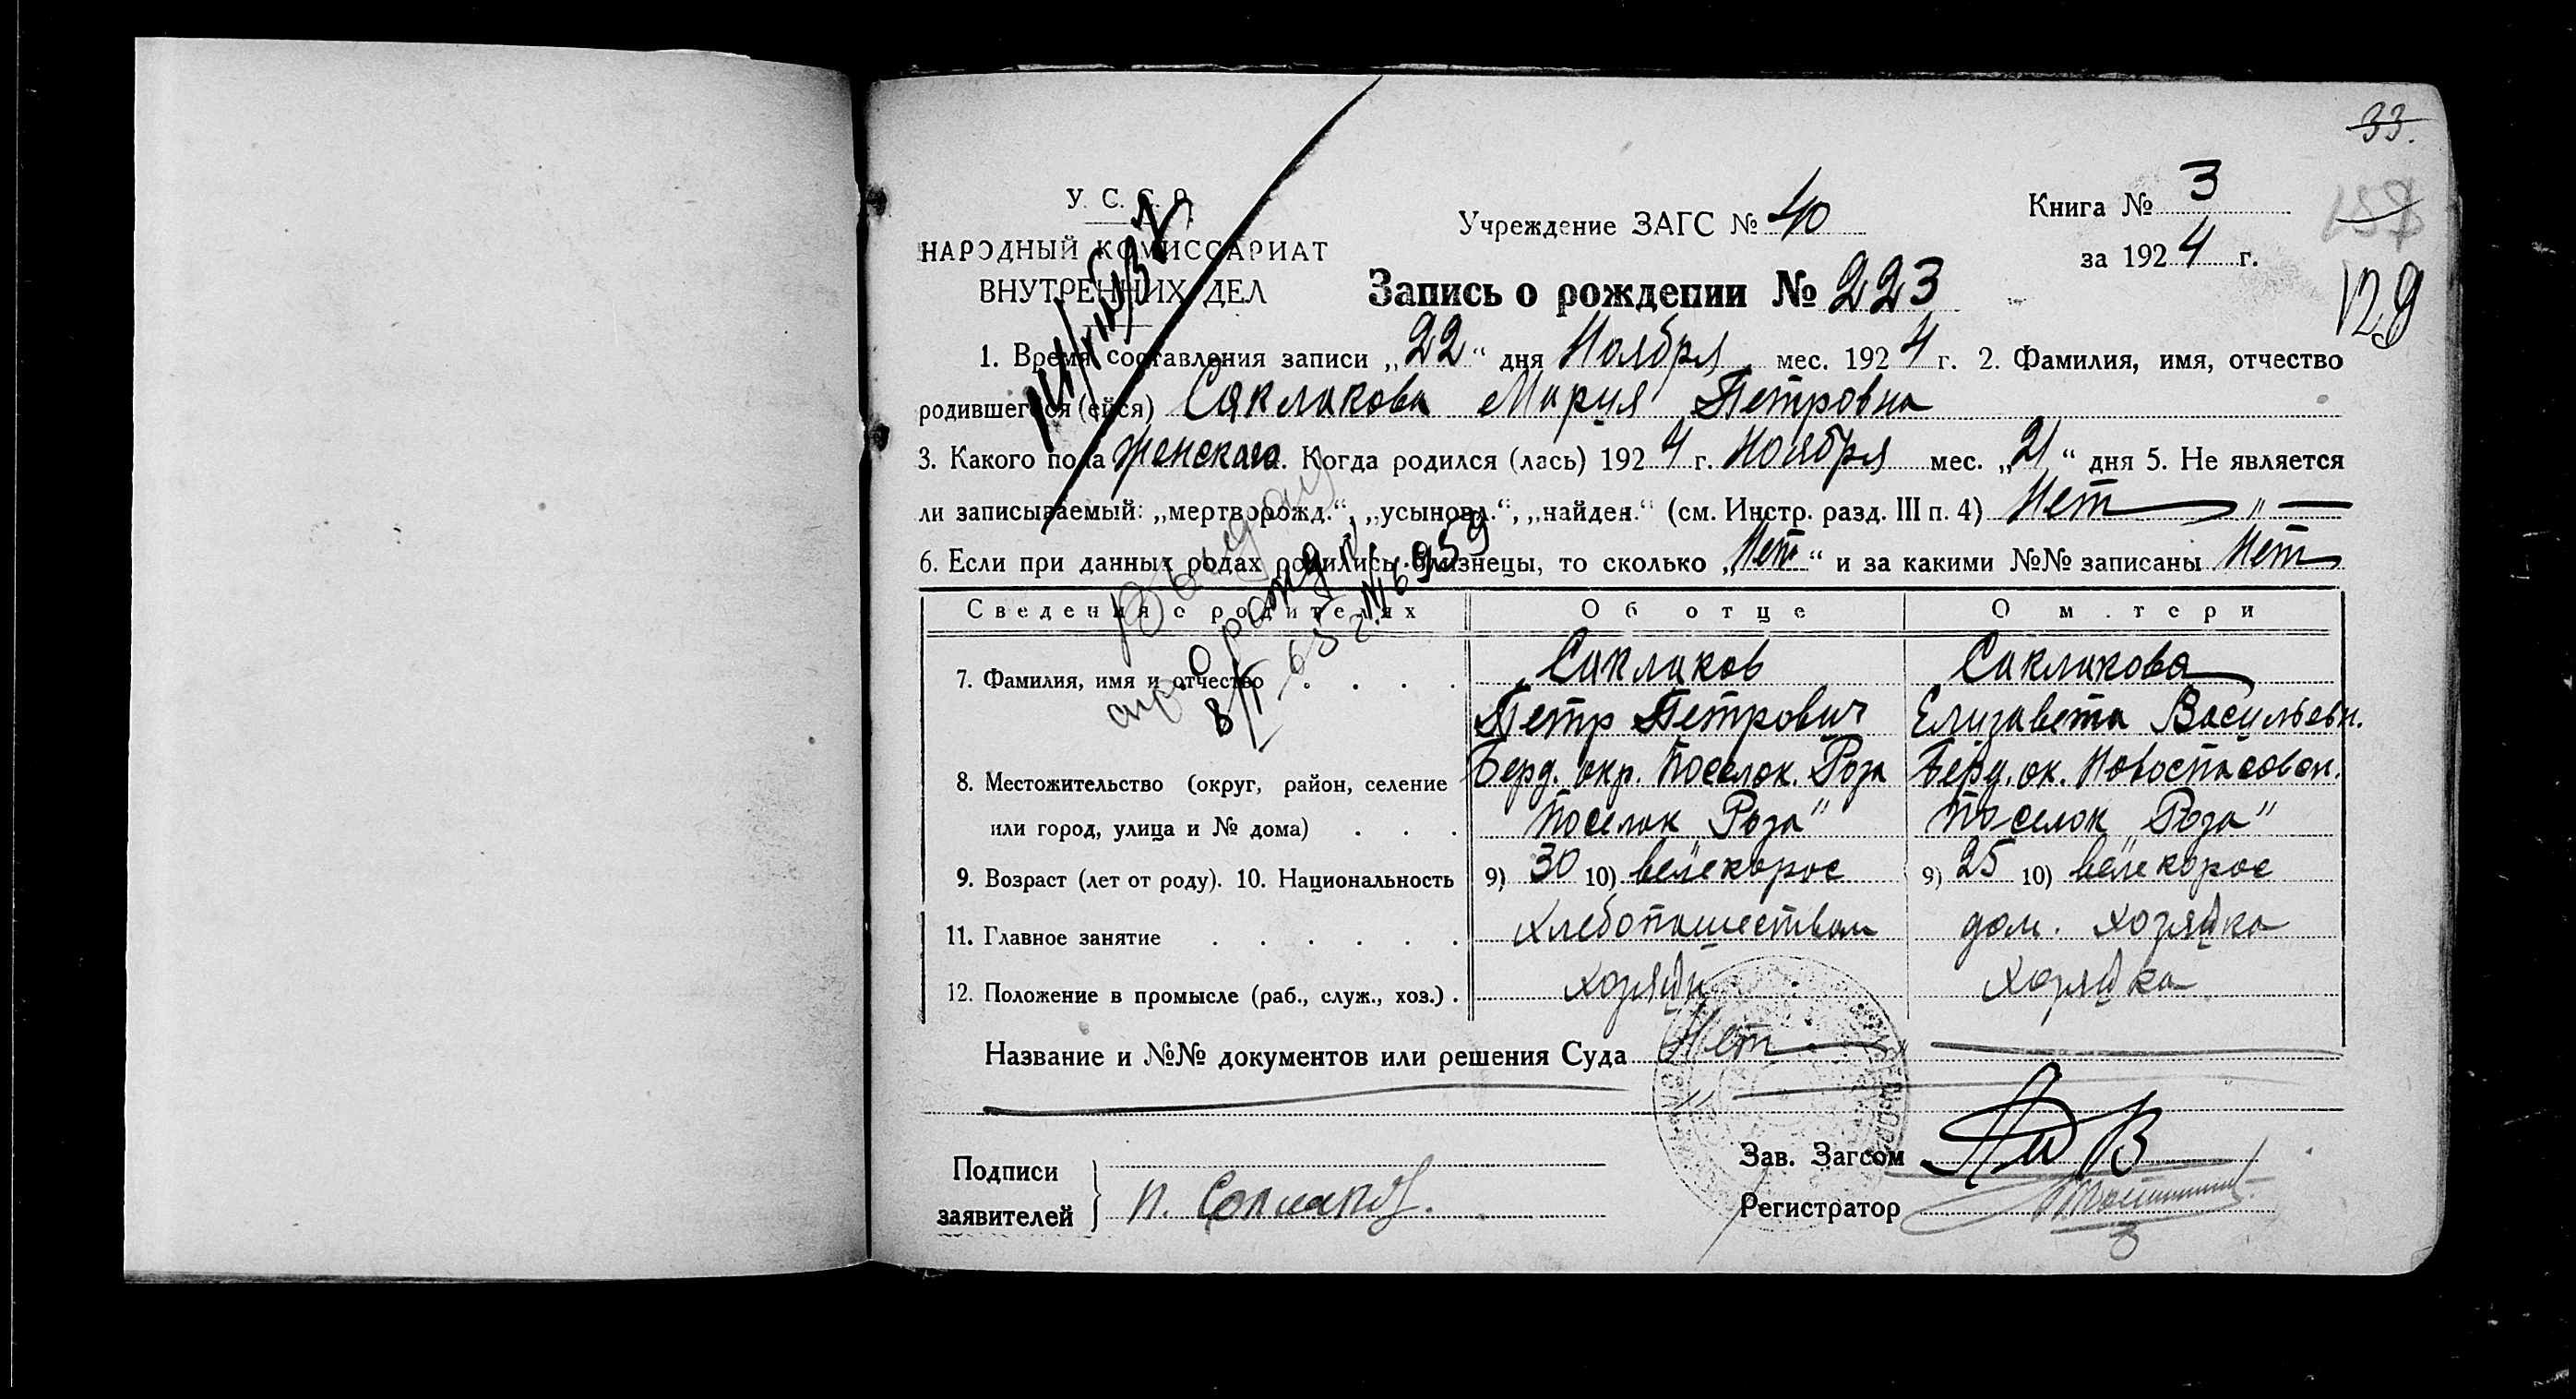 33.
У. С. С. Р.
НАРОДНЫЙ КОМИССАРИАТ
ВНУТРЕННИХ ДЕЛ
Учреждение ЗАГС № 40
Книга № 3
за 1924 г.
129
Запись о рождении № 223
1. Время составления записи „22“ дня Ноября мес. 1924 г. 2. Фамилия, имя, отчество
родившегося (ейся) Саклакова Мария Петровна
3. Какого пола женскаго. Когда родился (лась) 1924 г. Ноября мес. „21“ дня 5. Не является
ли записываемый: „мертворожд.“, „усыновл.“, „найден.“ (см. Инстр. разд. III п. 4) Нет
6. Если при данных родах родились близнецы, то сколько „Нет“ и за какими №№ записаны Нет
Сведения о родителях Об отце О м.тери
7. Фамилия, имя и отчество Саклаков Саклакова
Петр Петрович Елизавета Васильевн.
8. Местожительство (округ, район, селение Берд. окр. Поселок. Роза Берд. ок. Новоспасовск.
или город, улица и № дома) Поселок Роза" Поселок „Роза"
9. Возраст (лет от роду). 10. Национальность 9) 30 10) велекорос 9) 25 10) велекорос
11. Главное занятие Хлебопашеством дом. хозяйка
12. Положение в промысле (раб., служ., хоз.). хозяин хозяйка
Название и №№ документов или решения Суда Нет
Подписи
заявителей
П. Саклаков.
Зав. Загсом
Регистратор